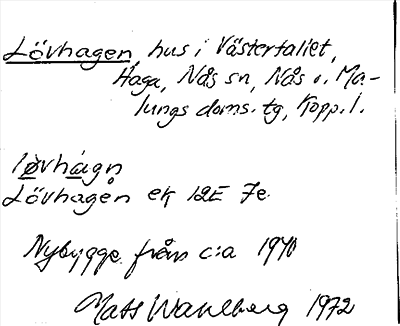 Lövhagen, hus i Västerfallet,
Haga, Nås sn, Nås o. Ma-
lungs doms. tg, Kopp. l.
løvhagn
Lövhagen ek 12E 7e
Nybygge från c:a 1940
Mats Wahlberg 1972